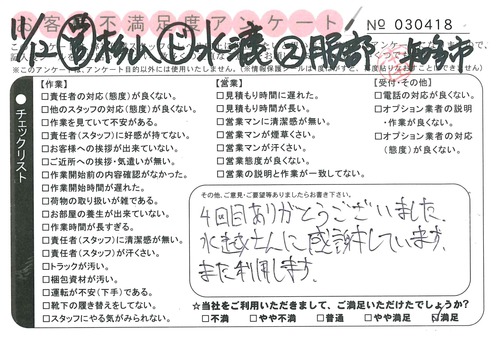 お客様不満足度アンケート
№ 030418
11/12 営 杉山 ド 水渡 ② 服部
※このアンケートは、アンケート目的以外には使用いたしません。
チェックリスト
【作業】
□責任者の対応(態度)が良くない。
□他のスタッフの対応(態度)が良くない。
□作業を見ていて不安がある。
□責任者(スタッフ)に好感が持てない。
□お客様への挨拶が出来ていない。
□ご近所への挨拶・気遣いが無い。
□作業開始前の内容確認がなかった。
□作業開始時間が遅れた。
□荷物の取り扱いが雑である。
□お部屋の養生が出来ていない。
□作業時間が長すぎる。
□責任者(スタッフ)に清潔感が無い。
□責任者(スタッフ)が汗くさい。
□トラックが汚い。
□梱包資材が汚い。
□運転が不安(下手)である。
□靴下の履き替えをしてない。
□スタッフにやる気がみられない。
【営業】
□見積もり時間に遅れた。
□見積もり時間が長い。
□営業マンに清潔感が無い。
□営業マンが煙草くさい。
□営業マンが汗くさい。
□営業態度が良くない。
□営業の説明と作業が一致してない。
【受付・その他】
□電話の対応が良くない。
□オプション業者の説明
・作業が良くない。
□オプション業者の対応
(態度)が良くない。
その他、ご意見・ご要望等ありましたらお書き下さい。
4回目ありがとうございました。
水越さんに感謝しています。
また利用します。
☆当社をご利用いただきまして、ご満足いただけたでしょうか?
□不満 □やや不満 □普通 □やや満足 ☑満足